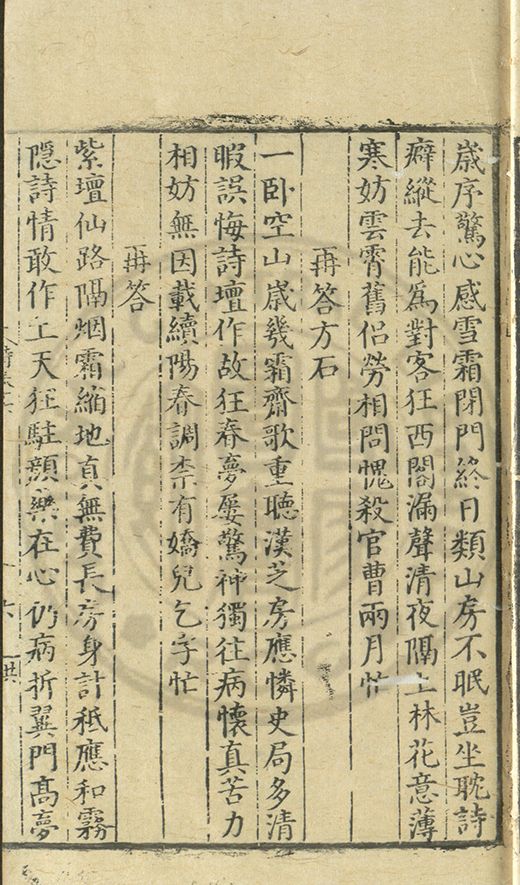 歲序驚心感雪霜閉門終日類山房不眠豈坐耽詩
癖縱去能爲對客狂西閣漏聲清夜隔上林花意薄
寒妨雲霄舊侶勞相問愧殺官曹兩月忙
再答方石
一卧空山歲幾霜齋歌重聽漢芝房應憐史局多清
暇誤悔詩壇作故狂春夢屢驚神獨往病懷真苦力
相妨無因載續陽春調柰有嬌兒乞字忙
再答
紫壇仙路隔烟霜縮地真無費長房身計秪應和霧
隱詩情敢作上天狂駐顏藥在心仍病折翼門高夢